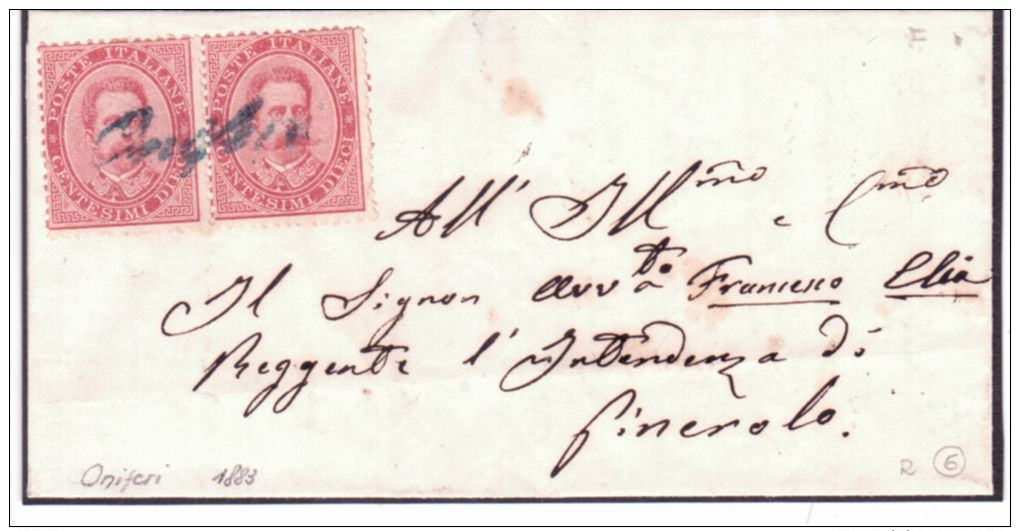 POSTE ITALIANE
CENTESIMI DIECI
POSTE ITALIANE
CENTESIMI DIECI
Oniferi
All' Ill.mo e C.mo
Il Signor Avv.to Francesco Elia
Reggente l'Intendenza di
Pinerolo.
Oniferi 1883
R 6